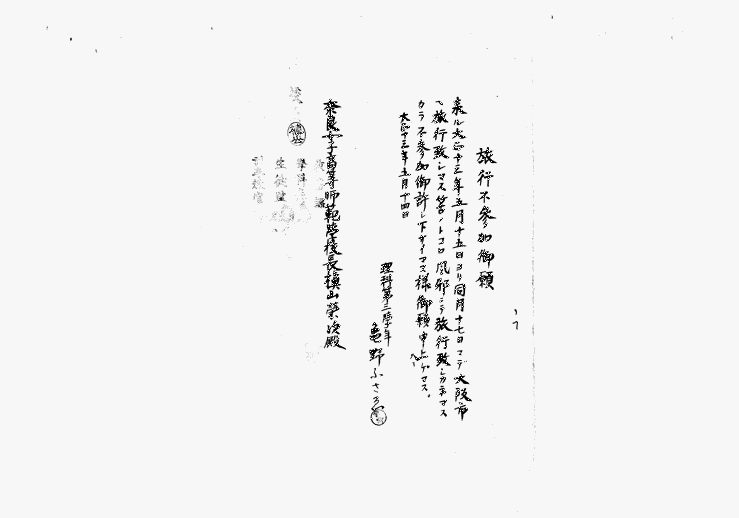 旅行不參加御願
來ル大正十三年五月十五日ヨリ同月十七日マデ大阪市
ヘ旅行致シマス筈ノトコロ風邪ニテ旅行致シカネマス
カラ不參加御許シ下サイマス樣御願申上ゲマス。
大正十三年五月十四日
理科第三學年
亀野ふさる
奈良女子高等師範學校長槇山榮次殿
生徒監